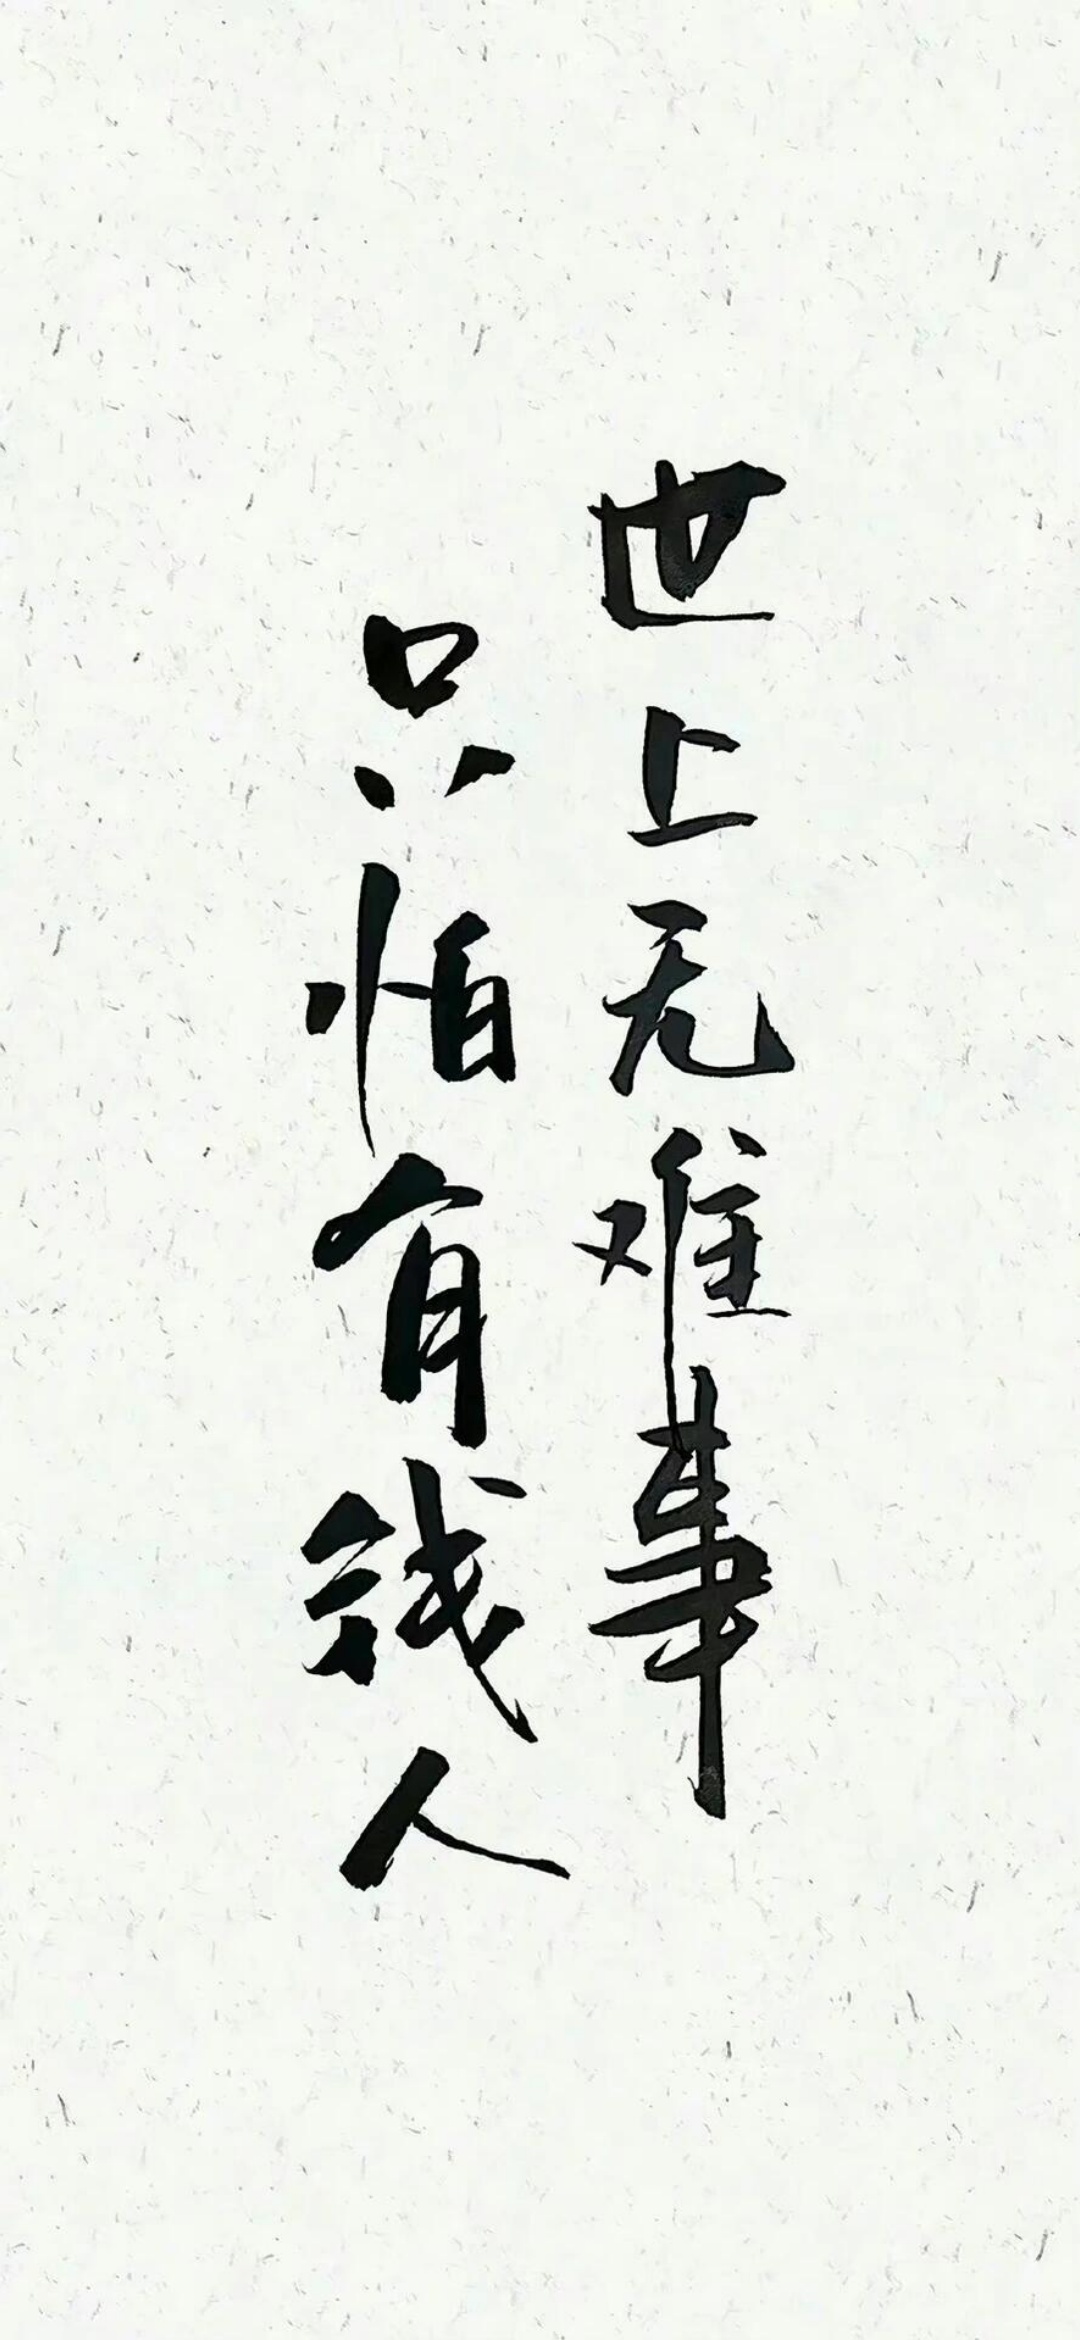 世上无难事
只怕有钱人